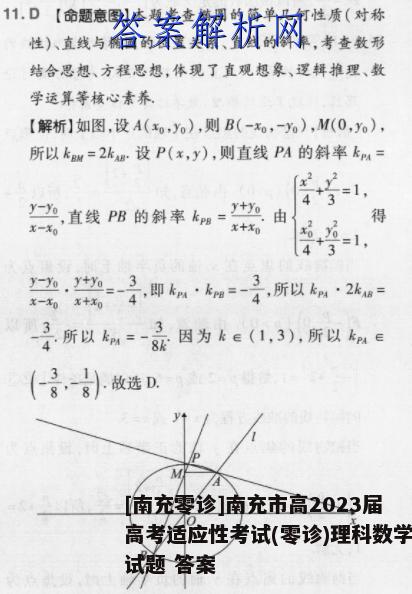 11.D 【命题意图】本题考查椭圆的简单几何性质(对称
答案解析网
性)、直线与椭圆的位置关系、直线的斜率,考查数形
结合思想、方程思想,体现了直观想象、逻辑推理、数
学运算等核心素养.
【解析】如图,设 A(x₀,y₀),则 B(-x₀,-y₀),M(0,y₀),
所以 k_{BM}=2k_{AB}. 设 P(x,y),则直线 PA 的斜率 k_{PA}=
\frac{y-y₀}{x-x₀},直线 PB 的斜率 k_{PB}=\frac{y+y₀}{x+x₀}. 由 \begin{cases}\frac{x²}{4}+\frac{y²}{3}=1,\\ \frac{x₀²}{4}+\frac{y₀²}{3}=1,\end{cases} 得
\frac{y-y₀}{x-x₀}·\frac{y+y₀}{x+x₀}=-\frac{3}{4},即 k_{PA}·k_{PB}=-\frac{3}{4},所以 k_{PA}·2k_{AB}=
-\frac{3}{4}. 所以 k_{PA}=-\frac{3}{8k}. 因为 k∈(1,3),所以 k_{PA}∈
(-\frac{3}{8},-\frac{1}{8}). 故选 D.
y
l
P
M
A
O
x
B
[南充零诊]南充市高2023届
高考适应性考试(零诊)理科数学
试题 答案